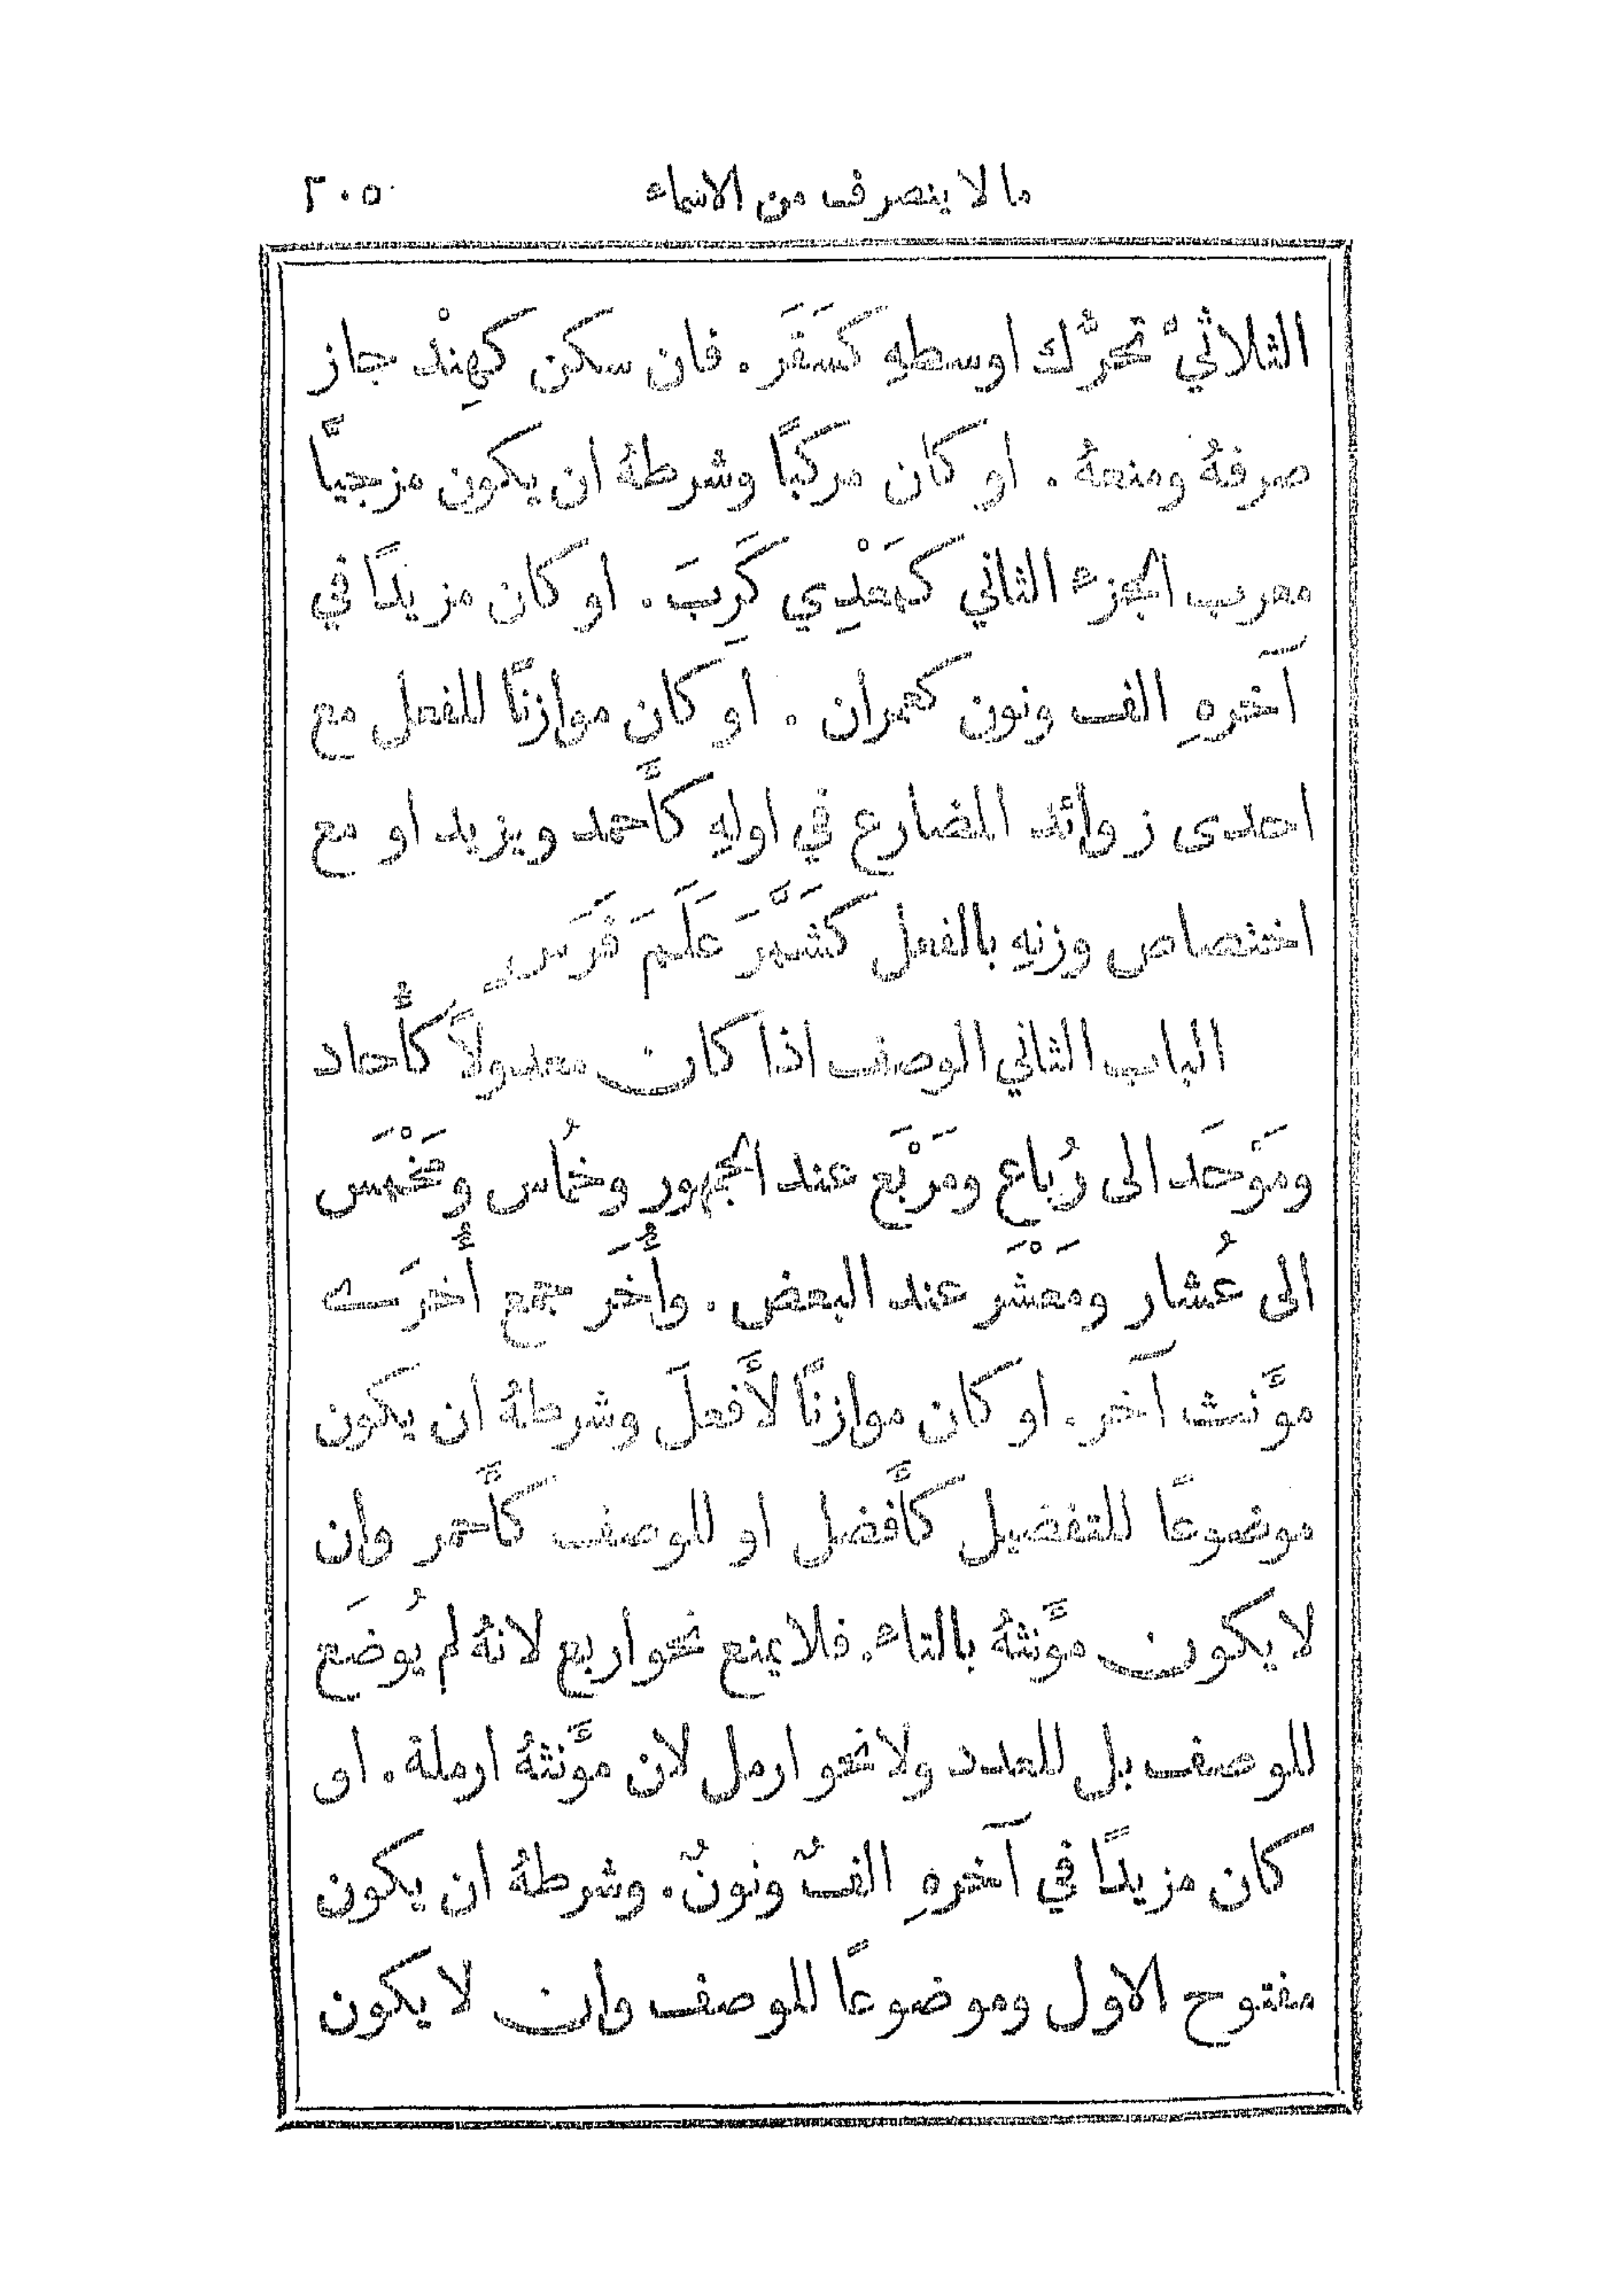 ما لا ينصرف من الاسماء ٢٠٥
الثلاثيّ تحرُّك اوسطهِ كَسَقَر. فان سكن كهِنْد جاز
صرفهُ ومنعهُ. او كان مركبًا وشرطهُ ان يكون مزجيًّا
معرب الجزء الثاني كمَعْدِي كَرِبَ. او كان مزيدًا في
آخرهِ الف ونون كعمران. او كان موازنًا للفعل مع
احدى زوائد المضارع في اولهِ كأَحمد ويزيد او مع
اختصاص وزنهِ بالفعل كشَمَّرَ عَلَم فَرَس
الباب الثاني الوصف اذا كان معدولاً كأُحاد
ومَوْحَد الى رُباع ومَرْبَع عند الجمهور وخُماس ومَخْمَس
الى عُشار ومَعْشَر عند البعض. وأُخَر جمع أُخرَى
مؤَنث آخر. او كان موازنًا لأَفعلَ وشرطهُ ان يكون
موضوعًا للتفضيل كأَفضل او للوصف كأَحمر وان
لا يكون مؤَنثهُ بالتاء. فلا يمنع نحو اربع لانهُ لم يُوضَع
للوصف بل للعدد ولا نحو ارمل لان مؤَنثهُ ارملة. او
كان مزيدًا في آخرهِ الفٌ ونونٌ. وشرطهُ ان يكون
مفتوح الاول وموضوعًا للوصف وان لا يكون